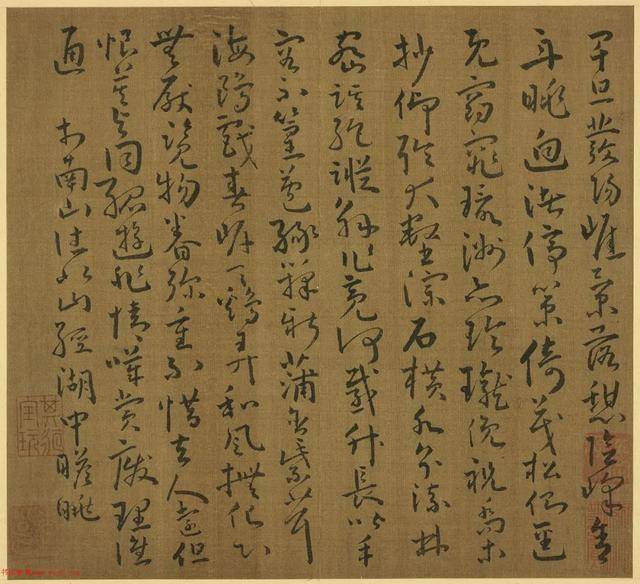 朝旦發陽崖景落憩陰峰舍
舟眺迥渚停策倚茂松側逕
既窈窕環洲亦玲瓏俛視喬木
杪仰聆大壑淙石橫水分流林
密蹊絕蹤解作竟何感升長皆丰
容初篁苞綠籜新蒲含紫茸
海鷗戲春岸天雞弄和風撫化心
無厭覽物眷彌重不惜去人遠但
恨莫與同孤遊非情歎賞廢理誰
通 於南山往北山經湖中瞻眺